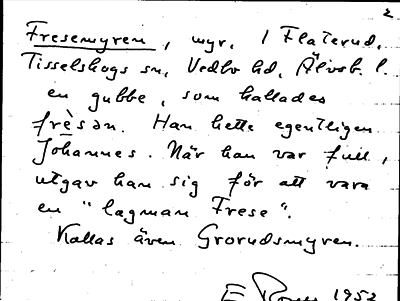 2
Fresemyren, myr. I Flaterud,
Tisselskogs sn, Vedbo hd, Älvsb. l.
en gubbe, som kallades
frèsən. Han hette egentligen
Johannes. När han var full,
utgav han sig för att vara
en "lagman Frese".
Kallas även Grorudsmyren.
1952